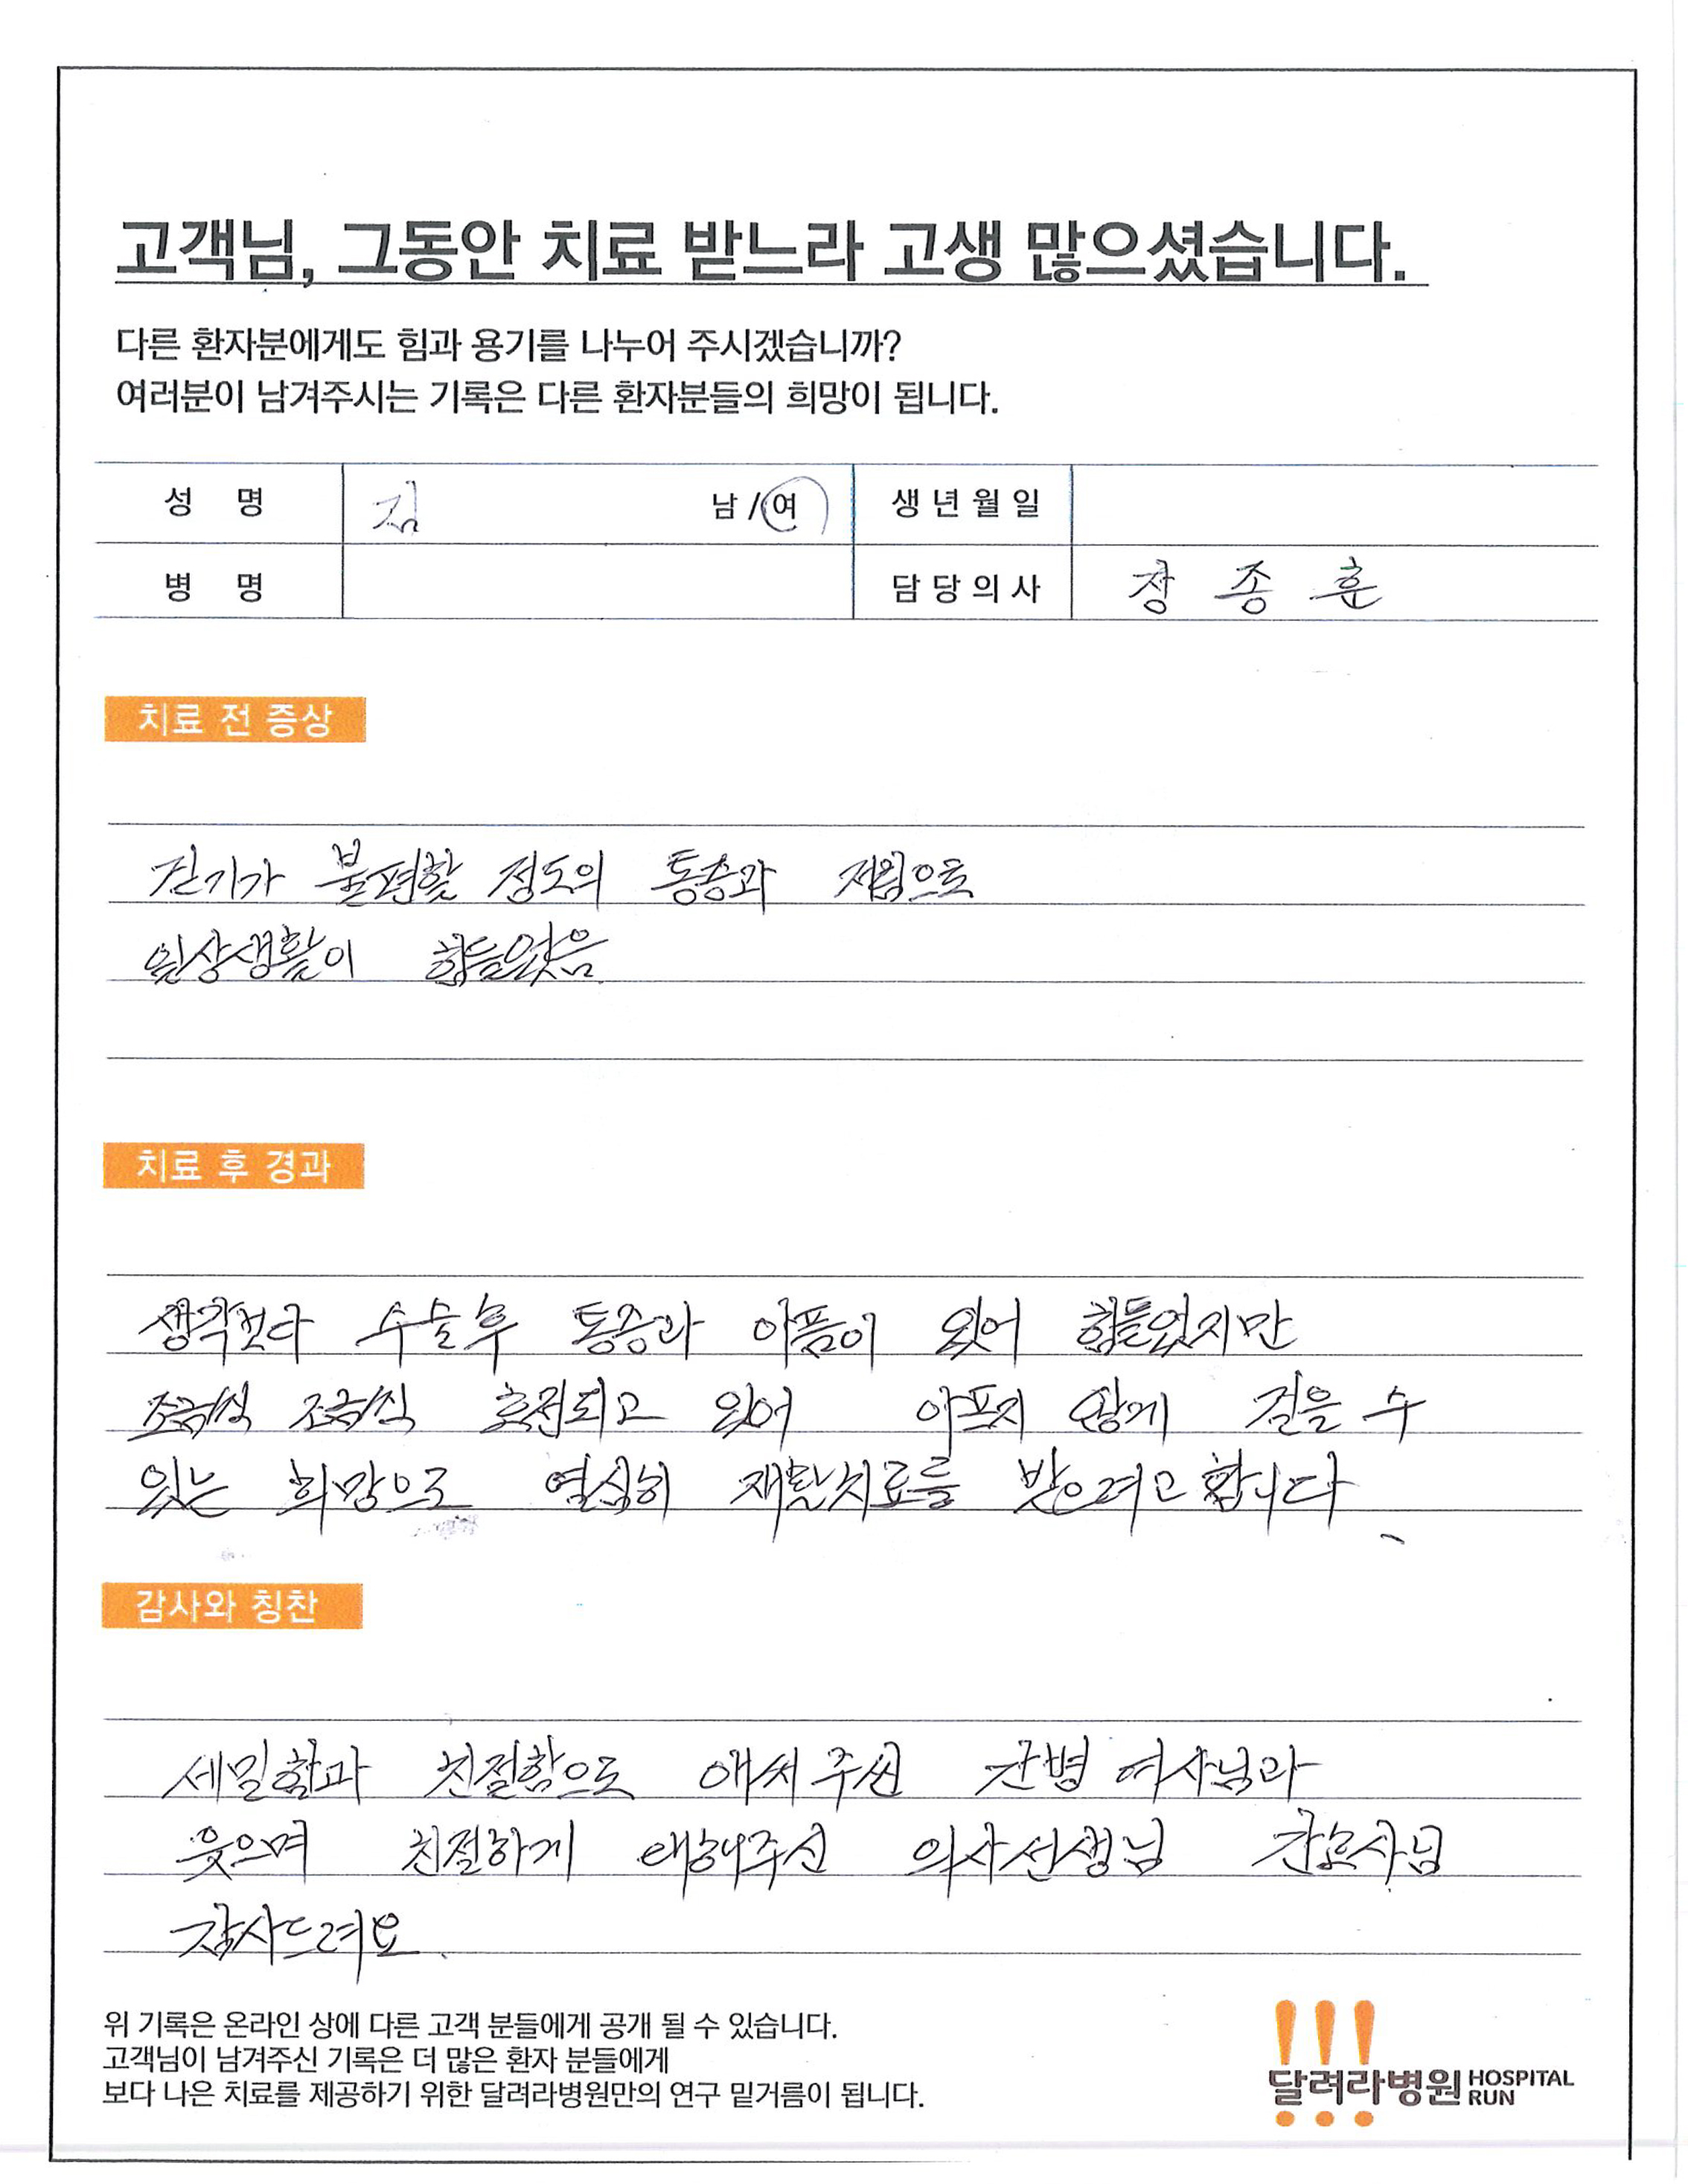 고객님, 그동안 치료 받느라 고생 많으셨습니다.
다른 환자분에게도 힘과 용기를 나누어 주시겠습니까?
여러분이 남겨주시는 기록은 다른 환자분들의 희망이 됩니다.
성 명 김 남 / 여 생년월일
병 명 담당의사 장종훈
치료 전 증상
걷기가 불편할 정도의 통증과 저림으로
일상생활이 힘들었음
치료 후 경과
생각보다 수술후 통증과 아픔이 있어 힘들었지만
조금씩 조금씩 호전되고 있어 아프지 않게 걸을 수
있는 희망으로 열심히 재활치료를 받으려고 합니다.
감사와 칭찬
세밀함과 친절함으로 애써주신 간병 여사님과
웃으며 친절하게 대해주신 의사선생님 간호사님
감사드려요.
위 기록은 온라인 상에 다른 고객 분들에게 공개 될 수 있습니다.
고객님이 남겨주신 기록은 더 많은 환자 분들에게
보다 나은 치료를 제공하기 위한 달려라병원만의 연구 밑거름이 됩니다.
달려라병원 HOSPITAL RUN